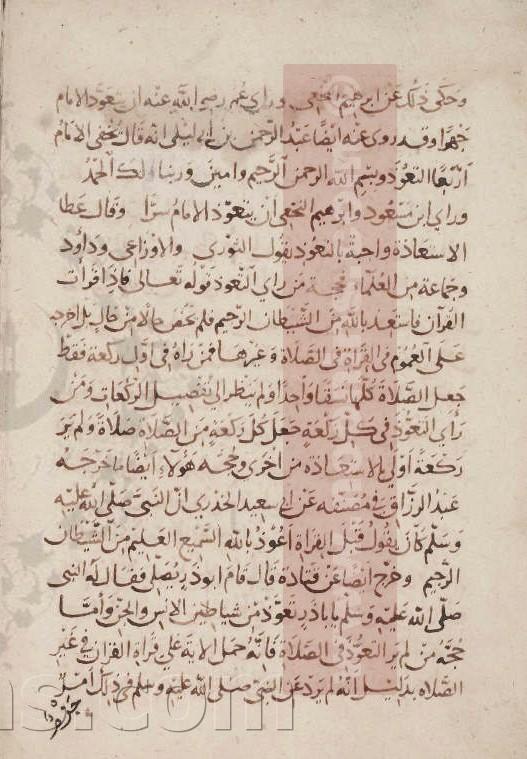 وحكى ذلك عن ابرهيم النخعي وراي عمر رضي الله عنه ان يتعوذ الامام
جهرا وقد روى عنه ايضا عبد الرحمن بن ابي ليلى انه قال يخفي الامام
اربعا التعوذ وبسم الله الرحمن الرحيم وامين وربنا لك الحمد
وراي ابن مسعود وابرهيم النخعي ان يتعوذ الامام سرا وقال عطا
الاستعاذة واجبة بالتعوذ يقول الثوري والاوزاعي وداود
وجماعة من العلماء فحجة من راي التعوذ قوله تعالى فاذا قرات
القران فاستعذ بالله من الشيطان الرجيم فلم يخص حالا من حال بل اخرجه
على العموم في القراة في الصلاة وغيرها فمن راه في اول ركعة فقط
جعل الصلاة كلها نسقا واحدا ولم ينظر الى تفصيل الركعات ومن
راى التعوذ في كل ركعة جعل كل ركعة من الصلاة صلاة ولم ير
ركعة اولى بالاستعاذة من اخرى وحجة هولاء ايضا ما خرجه
عبد الرزاق في مصنفه عن ابي سعيد الخدري ان النبي صلى الله عليه
وسلم كان يقول قبل القراة اعوذ بالله السميع العليم من الشيطان
الرجيم وخرج ايضا عن قتادة قال قام ابو ذر يصلي فقال له النبي
صلى الله عليه وسلم يا با ذر تعوذ من شياطين الانس والجن واما
حجة من لم ير التعوذ في الصلاة فانه حمل الاية على قراة القران في غير
الصلاه بدليل انه لم يرد عن النبي صلى الله عليه وسلم في ذلك امر
ns.com